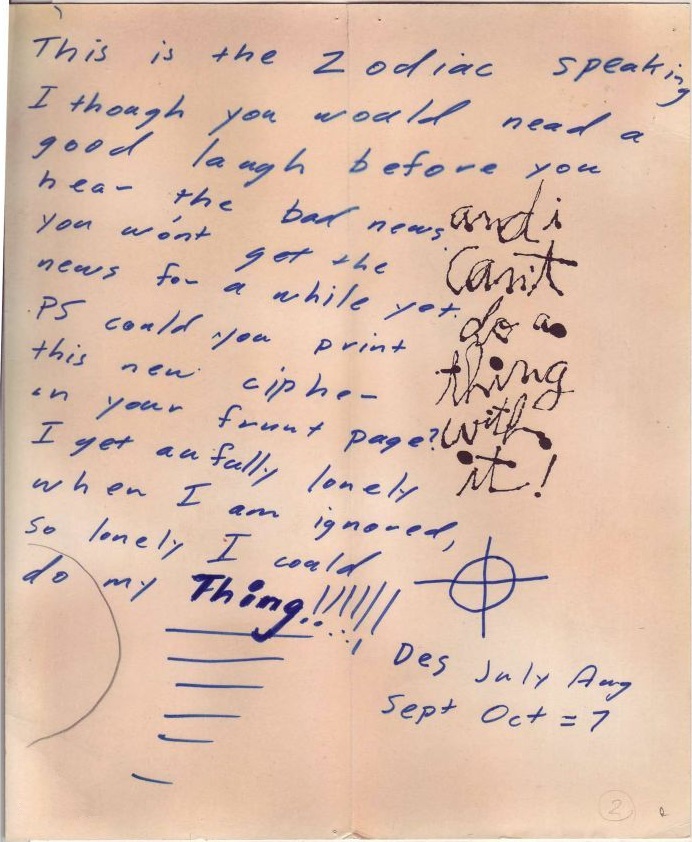 This is the Zodiac speaking
I though you would nead a
good laugh before you
hear the bad news.
you won't get the
news for a while yet.
PS could you print
this new cipher
in your frunt page?
I get aufully lonely
when I am ignored,
so lonely I could
do my Thing!!!!!!
and i
can't
do a
thing
with
it!
Des July Aug
Sept Oct = 7
2